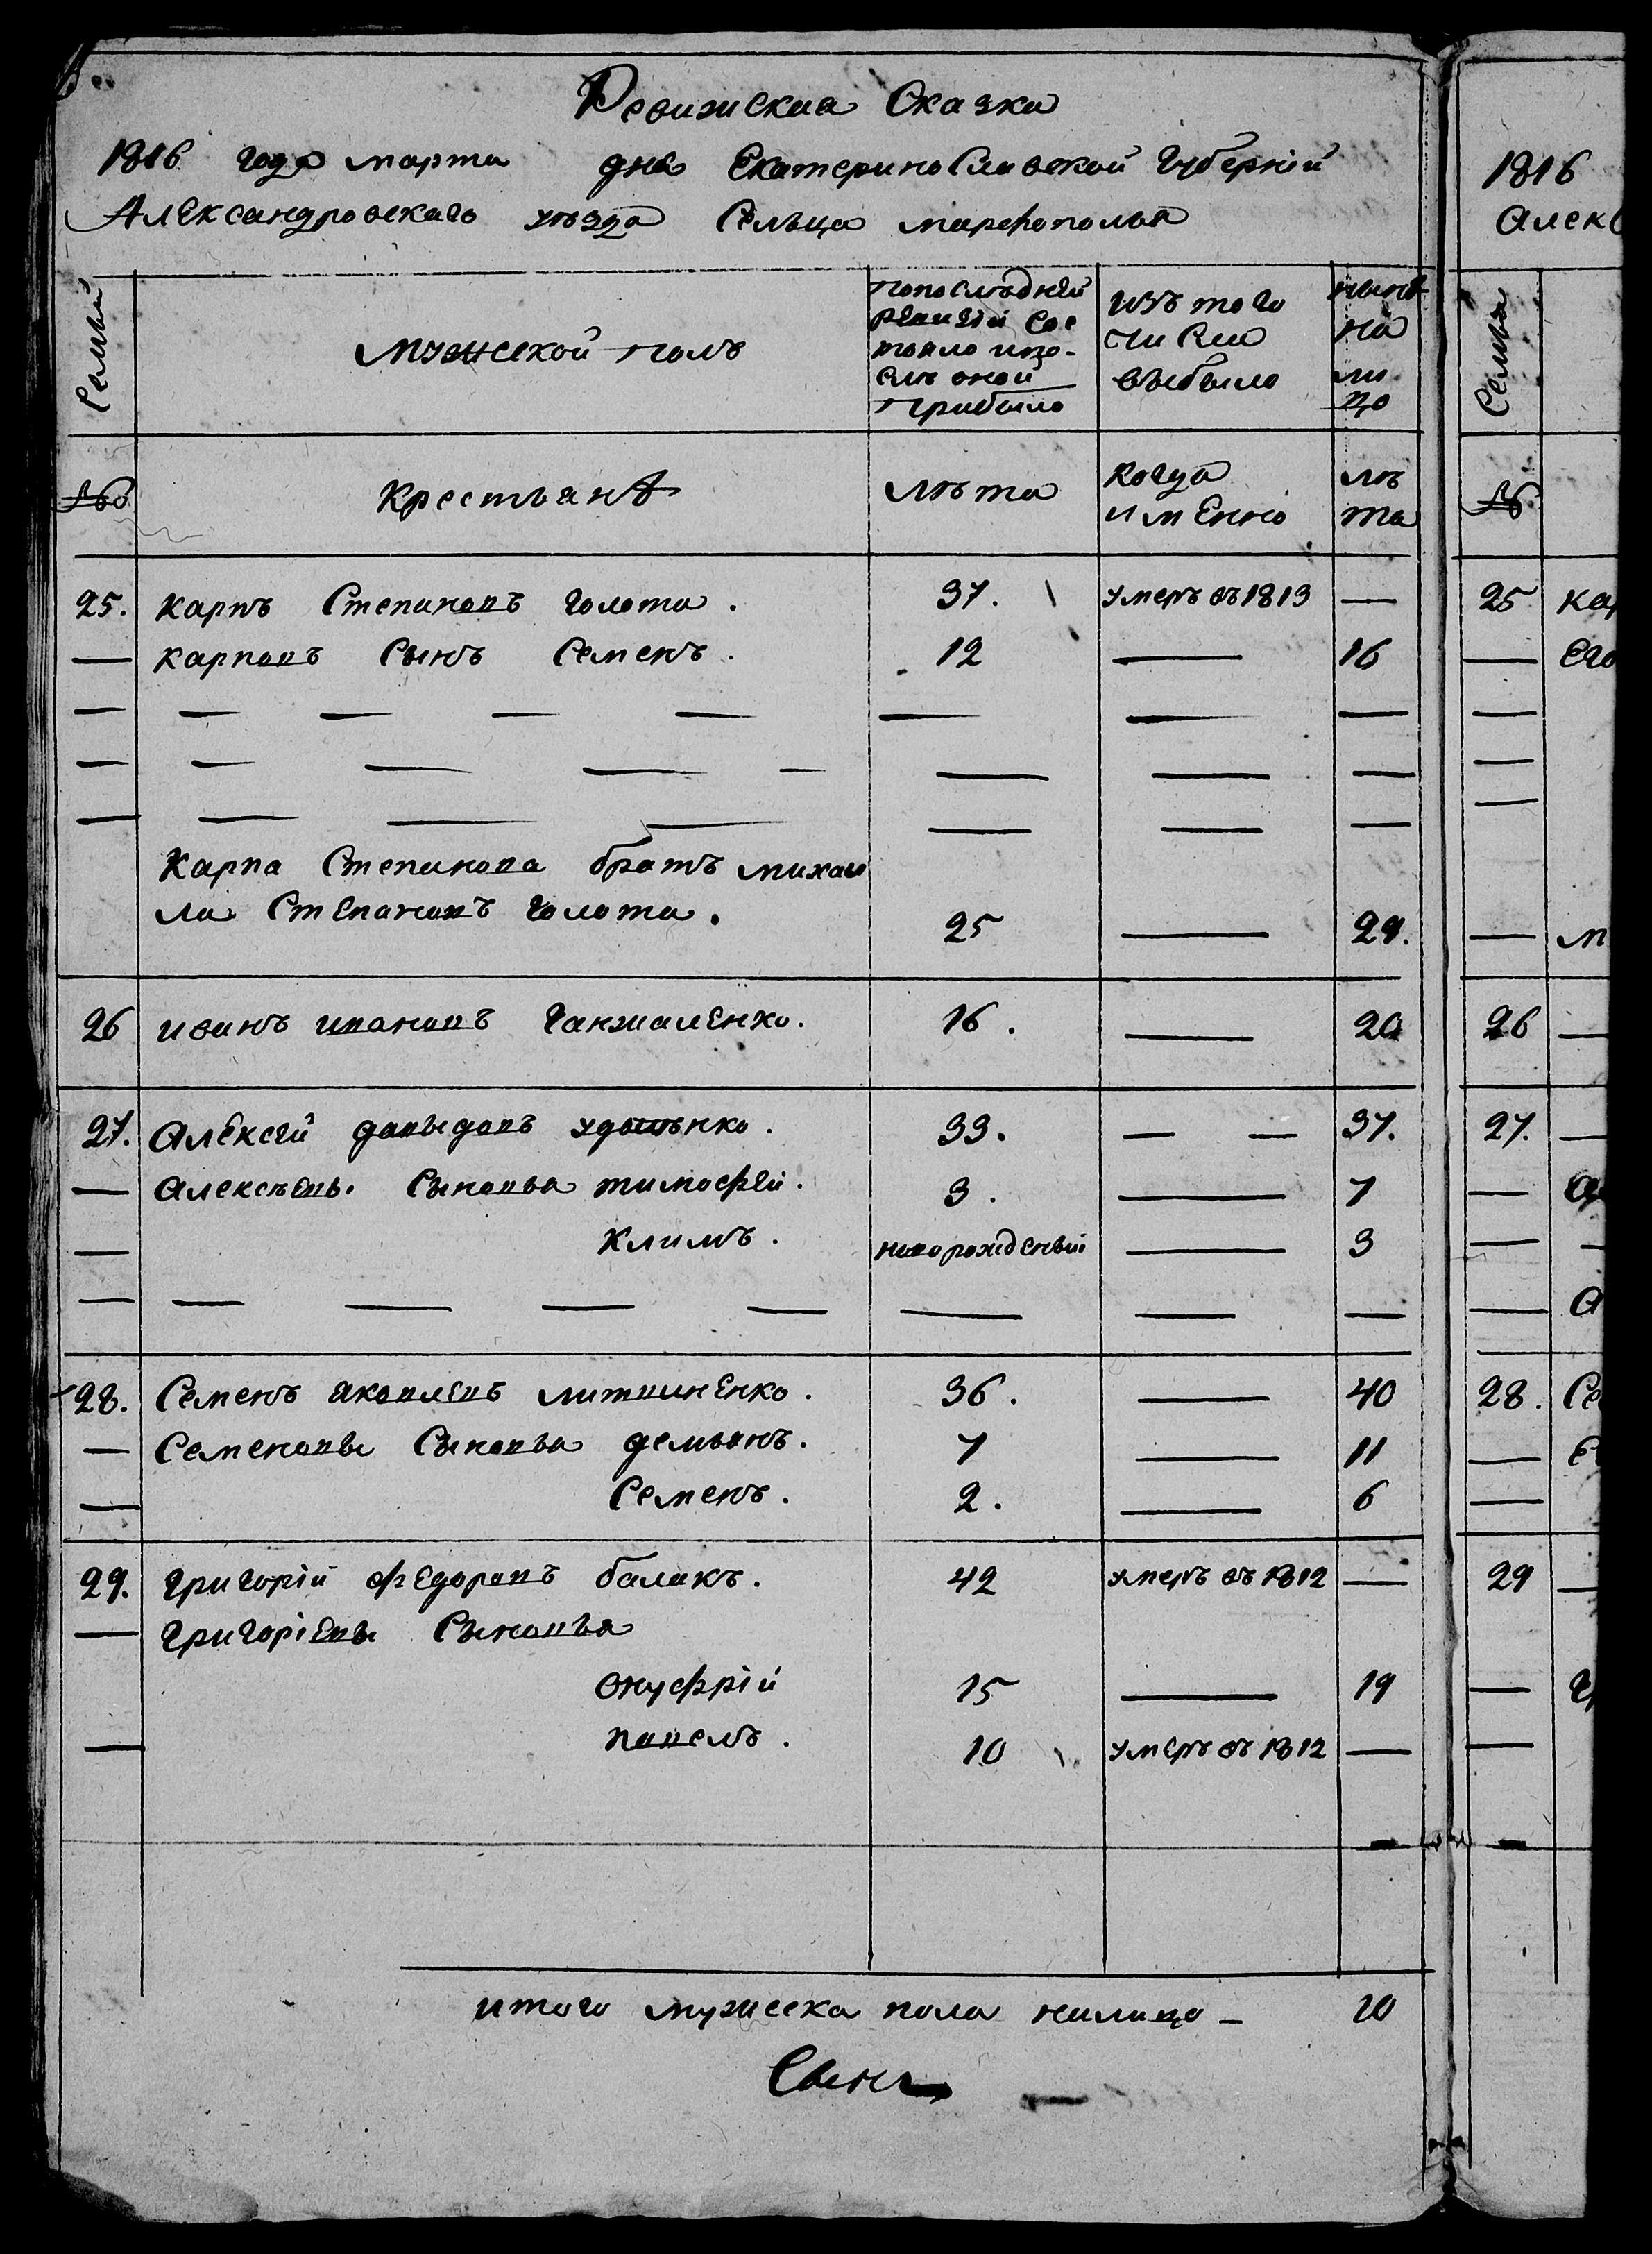 Ревижская Сказка
1816 года марта дня Екатеринославской Губерніи
Александровскаго уѣзда Сельца марфополья
Семьи
мужеской полъ
попослѣдней
ревизіи сос
тояло ипо-
слѣ оной
прибыло
изъ того
числа
выбыло
нынѣ
на
ли
цо
№
Крестьянѣ
лѣта
когда
именно
лѣ
та
25. карпъ Степановъ голота. 37. умеръ въ 1813 —
— карповъ Сынъ Семенъ. 12 — 16
Карпа Степанова братъ михаи
ла Степановъ голота. 25 — 29.
26 иванъ ивановъ Ганжаленко. 16. — 20
27. Алексей давыдовъ 33. — — 37.
— Алексѣевы Сыновья тимофей. 3. — 7
— Климъ. новорожденый — 3
28. Семенъ яковлевъ литвиненко. 36. — 40
— Семеновы Сыновья демьянъ. 7 — 11
— Семенъ. 2. — 6
29. григорій федоровъ балакъ. 42 умеръ въ 1812 —
— григоріевы Сыновья
онуфрій 15 — 19
— павелъ. 10 умеръ въ 1812 —
итого мужеска пола налицо — 10
Сынъ
1816
Алекс
Семьи
№
25 кар
— Его
— м
26 —
27. —
28. Се
29 —